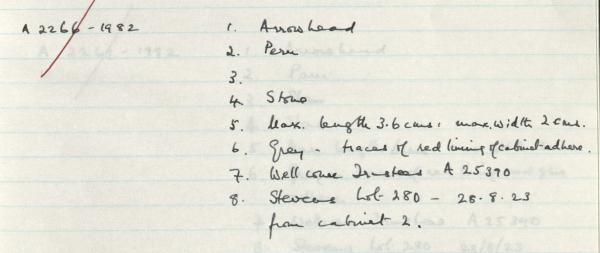 A 2266-1982
1. Arrowhead
2. Peru
3.
4. Stone
5. Max. length 3.6 cms. max. width 2 cms.
6. Grey - traces of red lining of cabinet adhere.
7. Wellcome Trustees A 25390
8. Stevens Lot 280 - 28.8.23
from cabinet 2.